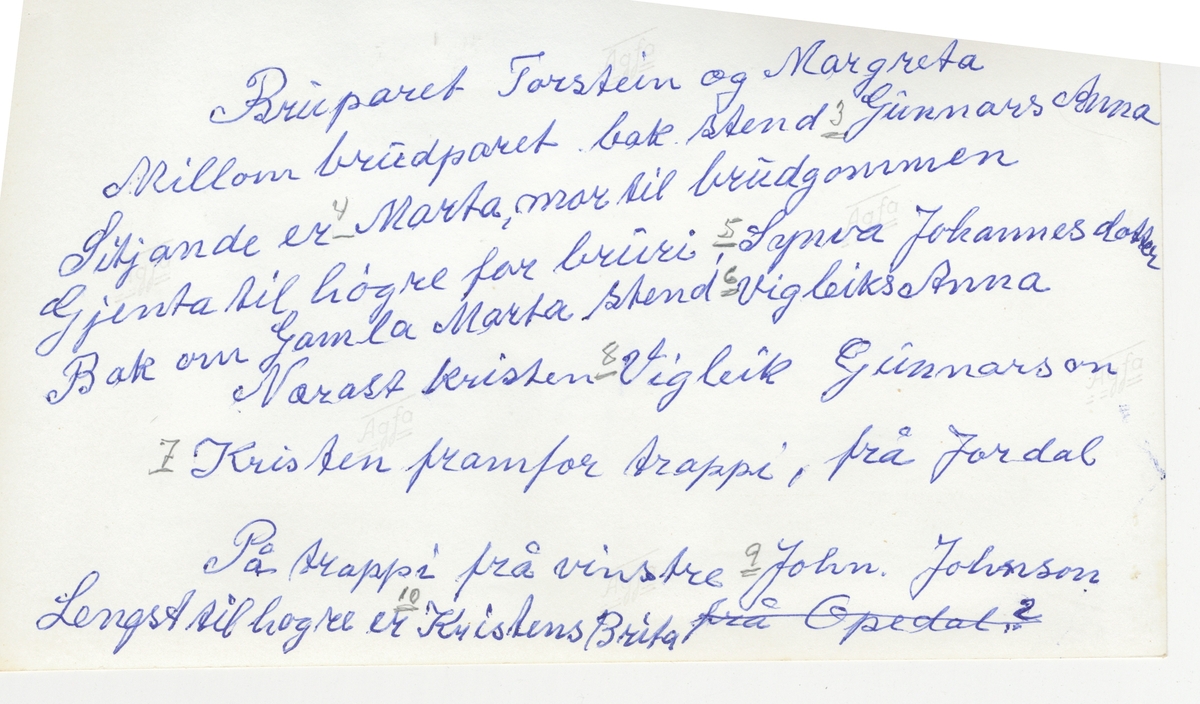 Brúparet Torstein og Margreta
Millom brúdparet bak stend 3 Gúnnars Anna
Sitjande er 4 Marta, mor til brúdgommen
Gjenta til högre for brúri, 5 Synva Johannesdotter
Bak om Gamla Marta stend 6 Vigleiks Anna
Nærast kristen 8 Vigleik Gúnnarson
7 Kristen framfor trappi, frå Jordal
På trappi frå vinstre 9 John. Johnson
Lengst til hogre er 10 Kristens Brita frå Opedal.?